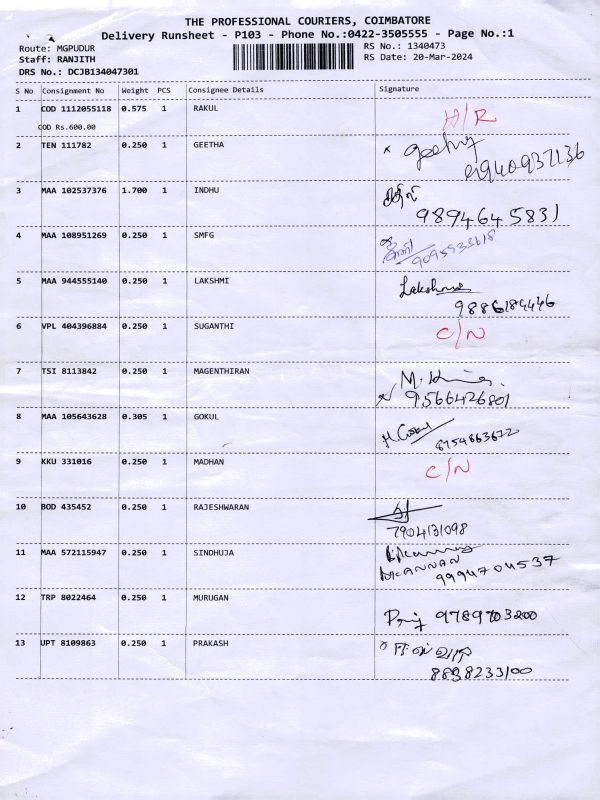 THE PROFESSIONAL COURIERS, COIMBATORE
Delivery Runsheet - P103 - Phone No.:0422-3505555 - Page No.:1
Route: MGPUDUR RS No.: 1340473
Staff: RANJITH RS Date: 20-Mar-2024
DRS No.: DCJB134047301
S No Consignment No Weight PCS Consignee Details Signature
1 COD 1112055118 0.575 1 RAKUL H/R
COD Rs.600.00
2 TEN 111782 0.250 1 GEETHA
3 MAA 102537376 1.700 1 INDHU
9894645831
4 MAA 108951269 0.250 1 SMFG
9095933618
5 MAA 944555140 0.250 1 LAKSHMI
9886184446
6 VPL 404396884 0.250 1 SUGANTHI C/N
7 TSI 8113842 0.250 1 MAGENTHIRAN
9566426801
8 MAA 105643628 0.305 1 GOKUL
8754863672
9 KKU 331016 0.250 1 MADHAN C/N
10 BOD 435452 0.250 1 RAJESHWARAN
7904131098
11 MAA 572115947 0.250 1 SINDHUJA
9994704537
12 TRP 8022464 0.250 1 MURUGAN
9789703200
13 UPT 8109863 0.250 1 PRAKASH
8838233100